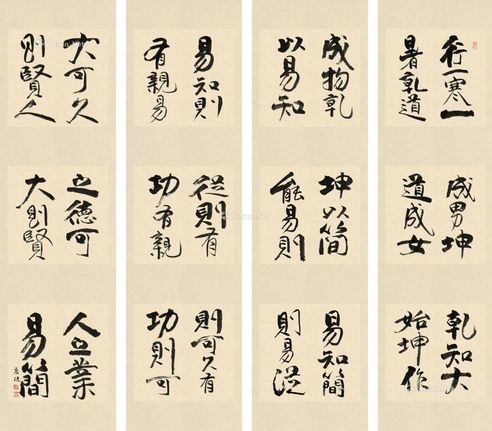 行一寒一
暑乾道
成男坤
道成女
乾知大
始坤作
成物乾
以易知
坤以簡
能易則
易知簡
則易從
易知則
有親易
從則有
功有親
則可久有
功則可
大可久
則賢人
之德可
大則賢
人之業
易簡